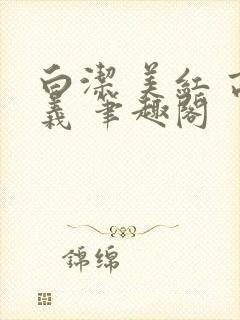 白潔 美紅 高
義 筆趣閣
錦绵